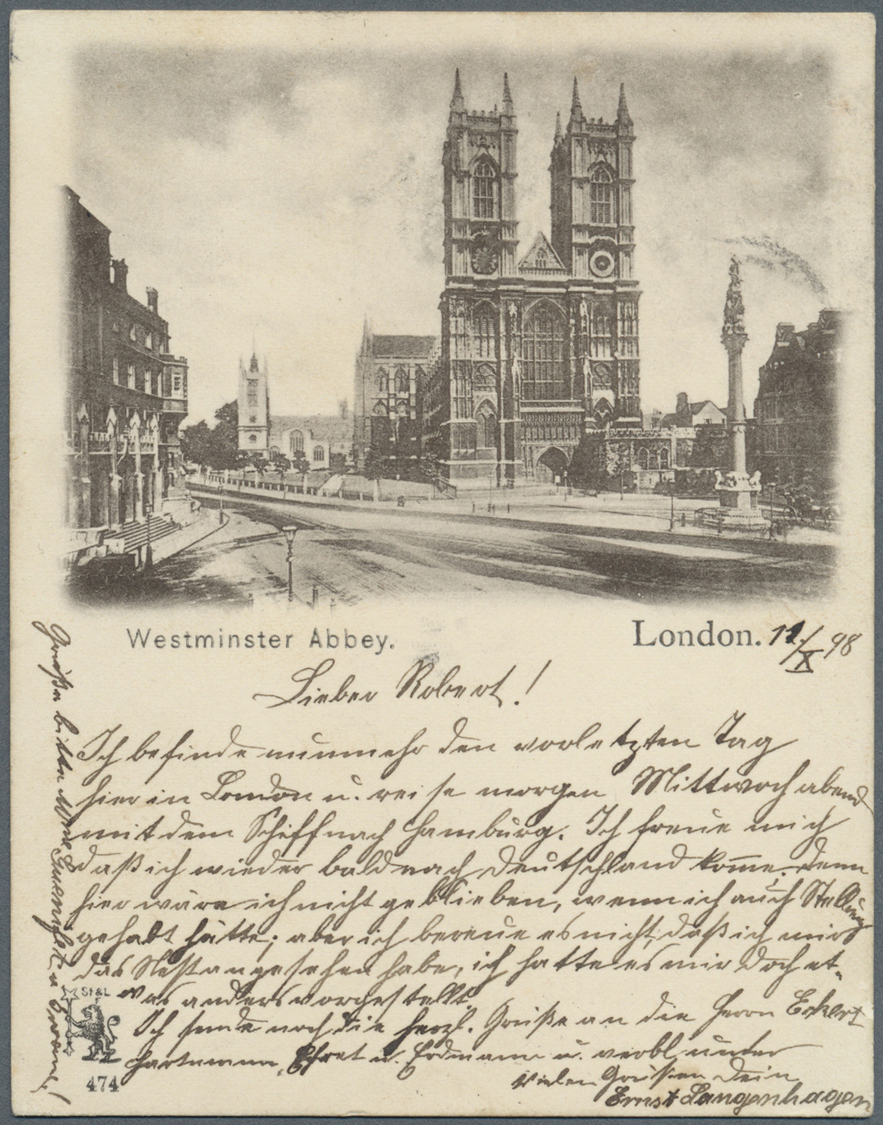 Westminster Abbey.
London. 11/X 98
Lieber Robert!
Ich befinde nunmehr den vorletzten Tag
hier in London u. reise morgen Mittwoch abend
mit dem Schiff nach Hamburg. Ich freue mich
daß ich wieder bald nach Deutschland komme. denn
hier wäre ich nicht geblieben, wenn ich auch Stellung
gehabt hätte; aber ich bereue es nicht, daß ich mir
das Nest angesehen habe, ich hatte es mir doch et-
was anders vorgestellt.
Ich sende noch die herzl. Grüße an die Herrn Eckert
Hartmann, Ehret u. Erdmann u. verbl. unter
vielen Grüßen Dein
Ernst Langenhagen
Grüße bitte
St & L
474